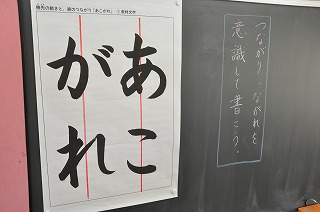 穂先の動きと、線のつながり「あこがれ」 ① 教材文字
あこ
がれ
つながり、ながれを
意識して書こう。